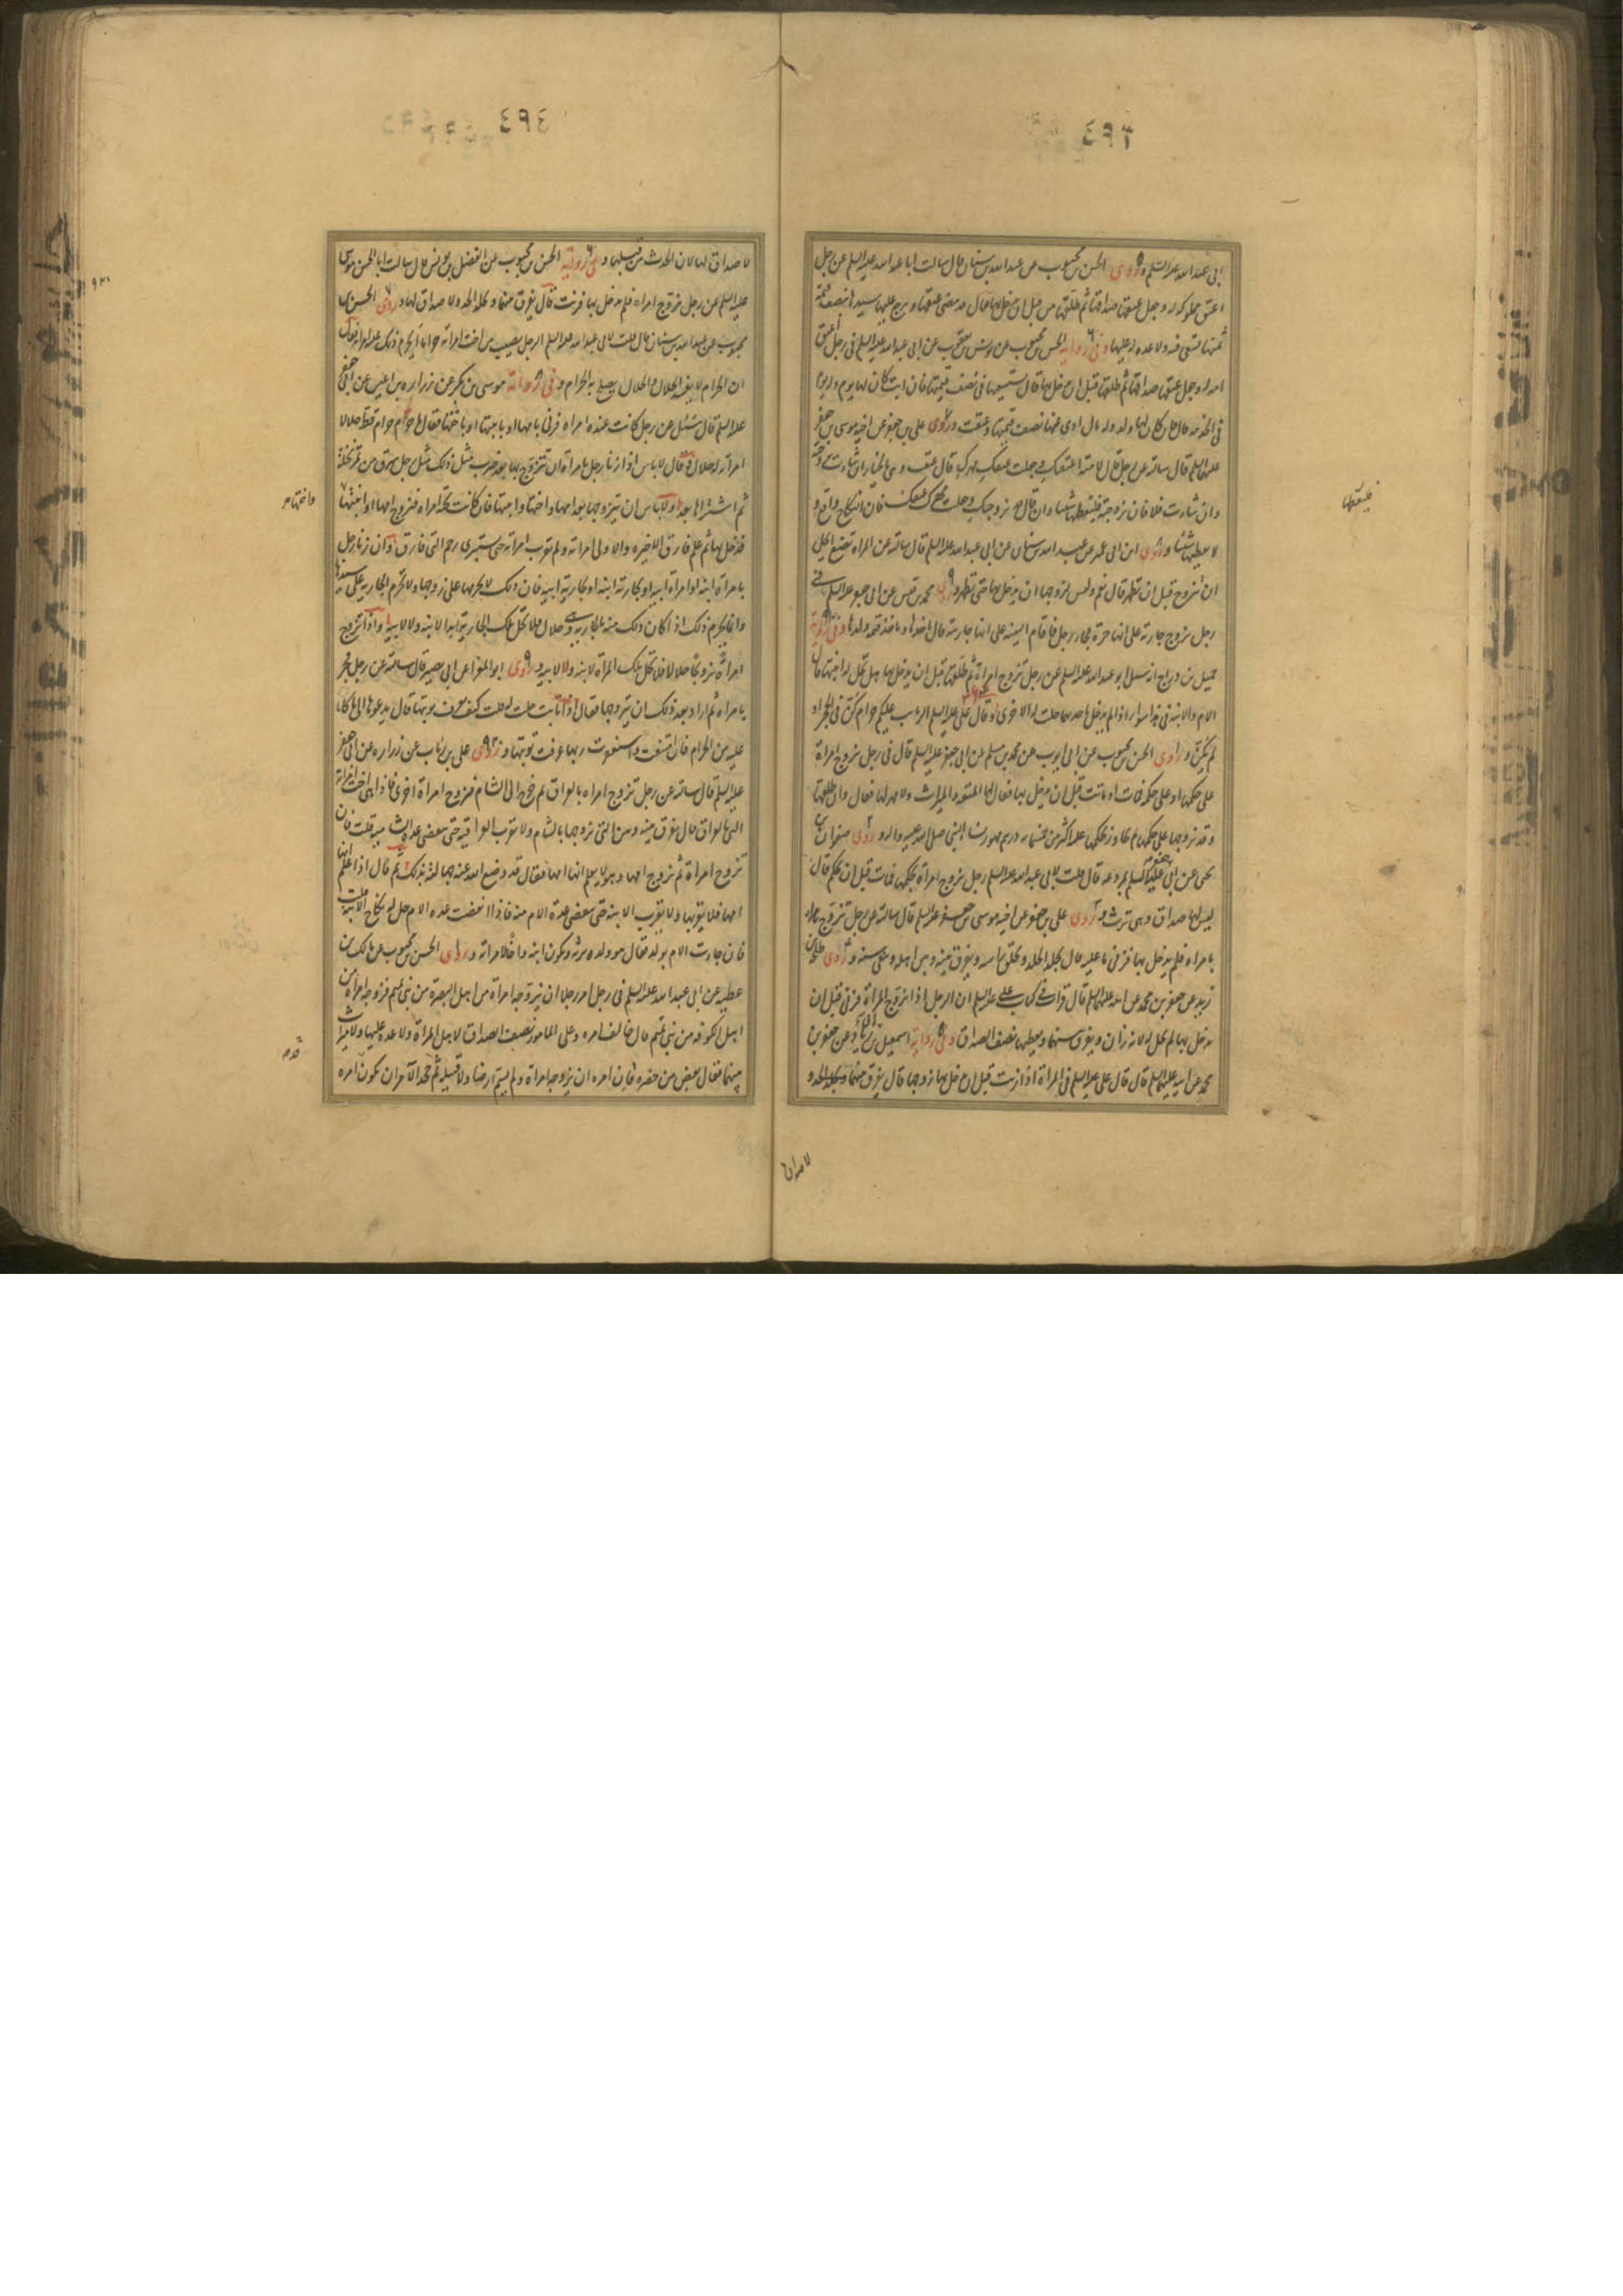 ٤٩٣
ابى عبد الله عليه السلم وروى الحسن بن محبوب عن عبد الله بن سنان قال سالت ابا عبد الله عليه السلم عن رجل
اعتق مملوكة له وجعل عتقها صداقها ثم طلقها من قبل ان يدخل بها فقال قد مضى عتقها ويرجع عليها سيدها بنصف قيمة
ثمنها تسعى فيه ولا عدة له عليها وفى رواية الحسن بن محبوب عن يونس بن يعقوب عن ابى عبد الله عليه السلم فى رجل اعتق
امة له وجعل عتقها صداقها ثم طلقها قبل ان يدخل بها قال يستسعيها فى نصف قيمتها فان ابت كان لها يوم وله يوم
فى الخدمة قال فان كان لها ولد وله مال ادى عنها نصف قيمتها وعتقت وروى على بن جعفر عن اخيه موسى بن جعفر
عليهما السلم قال سالته عن رجل قال لامته اعتقتك وجعلت عتقك مهرك قال عتقت وهى بالخيار ان شاءت تزوجته
وان شاءت فلا فان تزوجته فليعطها شيئا وان قال قد تزوجتك وجعلت مهرك عتقك فان النكاح واقع و
لا يعطيها شيئا وروى ابن ابى عمير عن عبد الله بن سنان عن ابى عبد الله عليه السلم قال سالته عن المراة تضع ايحل
ان تتزوج قبل ان تطهر قال نعم وليس لزوجها ان يدخل بها حتى تطهر وروى محمد بن قيس عن ابى جعفر عليه السلم فى
رجل تزوج جارية على انها حرة فجاء رجل فاقام البينة على انها جاريته قال ياخذها وياخذ قيمة ولدها وفى رواية
جميل بن دراج انه سئل ابو عبد الله عليه السلم عن رجل تزوج امراة ثم طلقها قبل ان يدخل بها هل تحل له ابنتها قال
الام والابنة فى هذا سواء اذا لم يدخل باحديهما حلت له الاخرى وقال على عليه السلم الربايب عليكم حرام كن فى الحجر او
لم يكن وروى الحسن بن محبوب عن ابى ايوب عن محمد بن مسلم عن ابى جعفر عليه السلم قال فى رجل تزوج امراة
على حكمها او على حكمه فمات او ماتت قبل ان يدخل بها فقال لها المتعة والميراث ولا مهر لها فقال وان طلقها
وقد تزوجها على حكمها لم يجاوز بحكمها عليه اكثر من خمسمائة درهم مهور نساء النبى صلى الله عليه واله وروى صفوان بن
يحيى عن ابى جعفر قال قلت لابى عبد الله عليه السلم رجل تزوج امراة بحكمها فمات قبل ان تحكم قال
ليس لها صداق وهى ترث وروى على بن جعفر عن اخيه موسى بن جعفر عليه السلم قال سالته عن رجل تزوج
بامراة فلم يدخل بها فزنى ما عليه قال يجلد الحد ويحلق راسه ويفرق بينه وبين اهله وينفى سنة وروى طلحة بن
زيد عن جعفر بن محمد عن ابيه عليهما السلم قال قرات فى كتاب على عليه السلم ان الرجل اذا تزوج المراة فزنى قبل ان
يدخل بها لم تحل له لانه زان ويفرق بينهما ويعطيها نصف الصداق وفى رواية اسمعيل بن ابى زياد عن جعفر بن
محمد عن ابيه عليهما السلم قال قال على عليه السلم فى المراة اذا زنت قبل ان يدخل بها زوجها قال يفرق بينهما وتجلد الحد و
فليعطها
لا صداق
٤٩٤
لا صداق لها لان الحدث من قبلها وفى رواية الحسن بن محبوب عن الفضل بن يونس قال سالت ابا الحسن موسى
عليه السلم عن رجل تزوج امراة فلم يدخل بها فزنت قال يفرق بينهما وتحد الحد ولا صداق لها وروى الحسن بن
محبوب عن عبد الله بن سنان قال قلت لابى عبد الله عليه السلم الرجل يصيب من اخت امراته حراما ايحرم ذلك عليه امراته فقال
ان الحرام لا يفسد الحلال والحلال يصلح به الحرام وفى رواية موسى بن بكر عن زرارة بن اعين عن ابى جعفر
عليه السلم قال سئل عن رجل كانت عنده امراة فزنى بامها او بابنتها او باختها فقال ما حرم حرام قط حلالا
امراته له حلال وقال لا باس اذا زنا رجل بامراة ان تتزوج بها بعد وضرب مثل ذلك مثل رجل سرق من تمر نخلة
ثم اشتراها بعد ولا باس ان يتزوجها بعد امها او اختها او ابنتها فان كانت تحته امراة فتزوج امها او ابنتها
فدخل بها ثم علم فارق الاخيرة والاولى امراته ولم يقرب امراته حتى يستبرى رحم التى فارق وان زنا رجل
بامراة ابنه او امراة ابيه او بجارية ابنه او بجارية ابيه فان ذلك لا يحرمها على زوجها ولا تحرم الجارية على سيدها
وانما يحرم ذلك اذا كان ذلك منه بالجارية وهى حلال فلا تحل تلك الجارية ابدا لابنه ولا لابيه واذا تزوج
امراة تزويجا حلالا فلا تحل تلك المراة لابنه ولا لابيه وروى ابو المغرا عن ابى بصير قال سالته عن رجل فجر
بامراة ثم اراد بعد ذلك ان يتزوجها فقال اذا تابت حلت له قلت كيف تعرف توبتها قال يدعوها الى ما كانا
عليه من الحرام فان امتنعت واستغفرت ربها عرف توبتها وروى على بن رئاب عن زرارة عن ابى جعفر
عليه السلم قال سالته عن رجل تزوج امراة بالعراق ثم خرج الى الشام فتزوج امراة اخرى فاذا هى اخت امراته
التى بالعراق قال يفرق بينه وبين التى تزوجها بالشام ولا يقرب العراقية حتى تنقضى عدة الشامية قلت فان
تزوج امراة ثم تزوج امها وهو لا يعلم انها امها فقال قد وضع الله عنه جهالته بذلك ثم قال اذا علم انها
امها فلا يقربها ولا يقرب الابنة حتى تنقضى عدة الام منه فاذا انقضت عدة الام حل له نكاح الابنة قلت
فان جاءت الام بولد فقال هو ولده يرثه ويكون ابنه واخا لامراته وروى الحسن بن محبوب عن مالك بن
عطية عن ابى عبد الله عليه السلم فى رجل امر رجلا ان يزوجه امراة من اهل البصرة من بنى تميم فزوجه امراة من
اهل الكوفة من بنى تميم قال خالف امره وعلى المامور نصف الصداق لاهل المراة ولا عدة عليها ولا ميراث
بينهما فقال بعض من حضره فان امره ان يزوجه امراة ولم يسم ارضا ولا قبيلة ثم جحد الآمر ان يكون امره